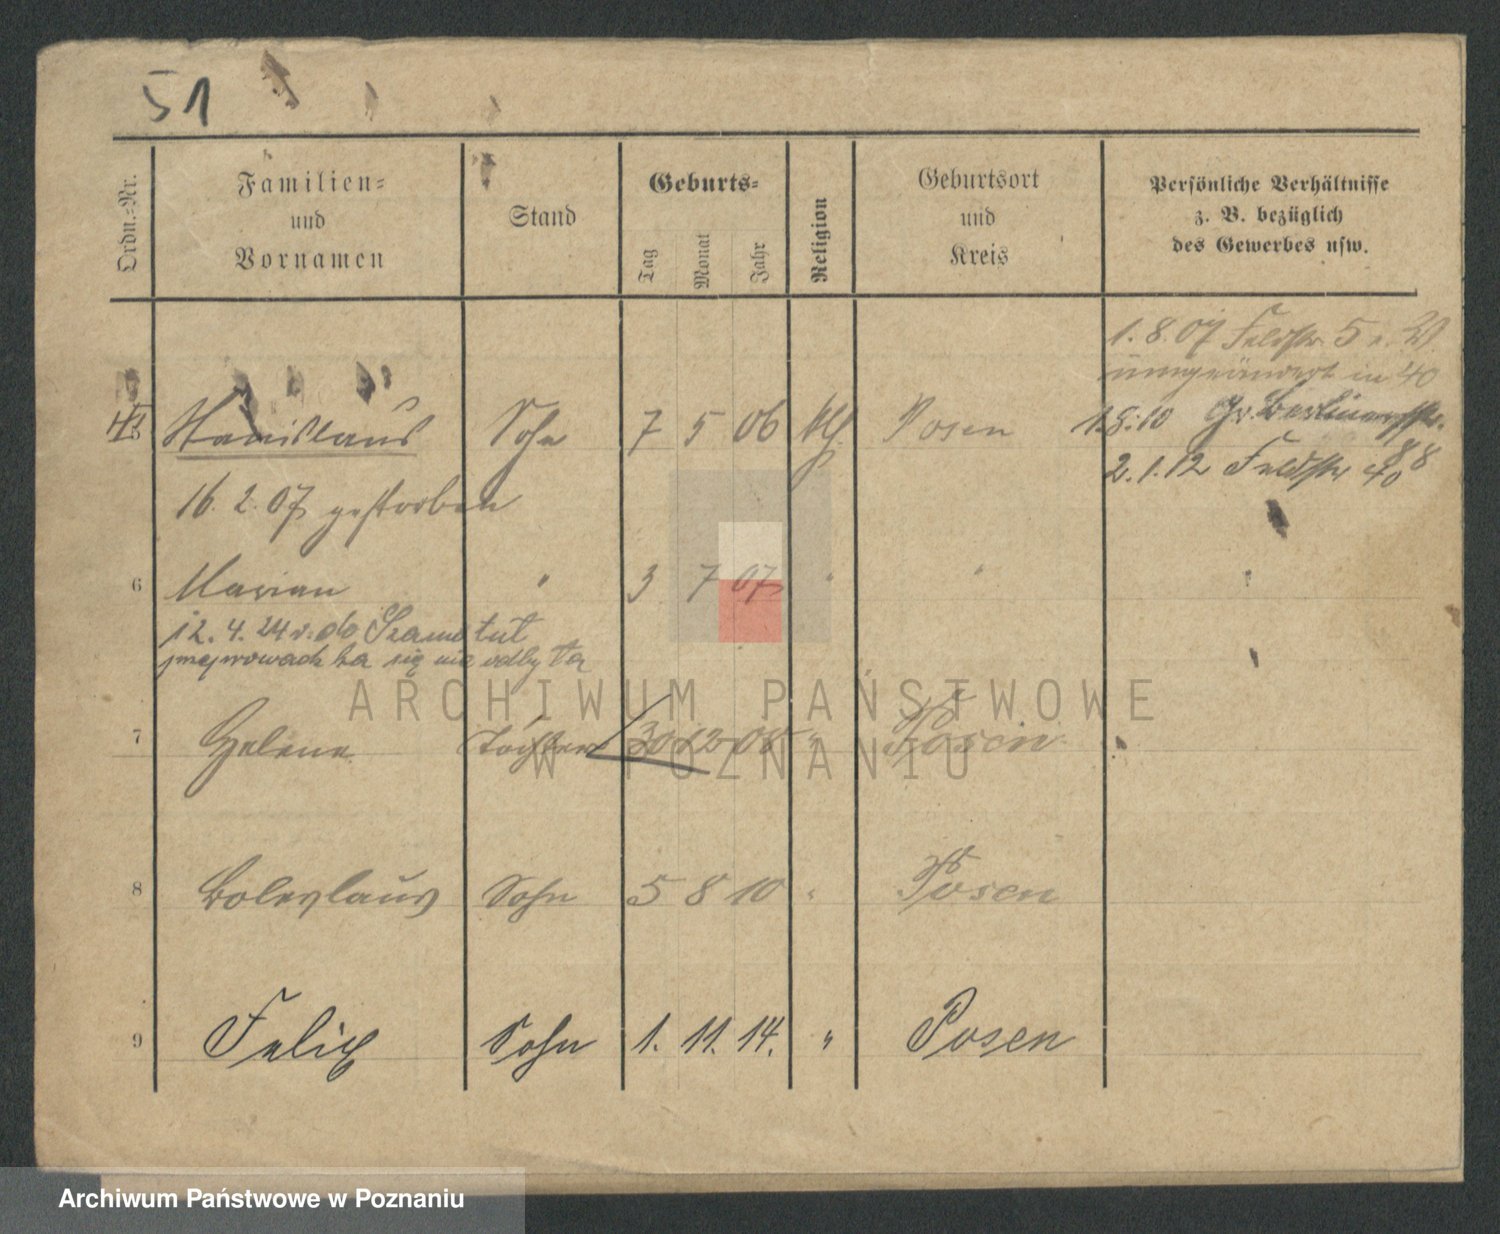 51
Ordn.-Nr.
Familien-
und
Vornamen
Stand
Geburts-
Tag
Monat
Jahr
Religion
Geburtsort
und
Kreis
Persönliche Verhältnisse
z. B. bezüglich
des Gewerbes usw.
1.8.07 Feldstr. 5 v. W.
umgeändert in 40
5 Stanislaus Sohn 7 5 06 kth. Posen 1.8.10 Gr. Berlinerstr.
88
2.1.12 Feldstr 40
16.2.07 gestorben
6 Marian " 3 7 07 " "
12.4.24 v. do Szamotuł
się nie odbyła
7 Helene Tochter 30 12 08 " Posen
8 Boleslaus Sohn 5 8 10 " Posen
9 Felix Sohn 1. 11. 14. " Posen
ARCHIWUM PAŃSTWOWE
W POZNANIU
Archiwum Państwowe w Poznaniu